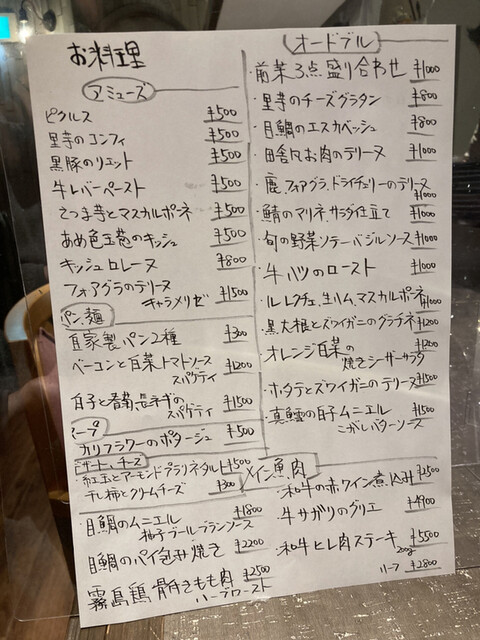 お料理
アミューズ
ピクルス ¥500
里芋のコンフィ ¥500
黒豚のリエット ¥500
牛レバーペースト ¥500
さつま芋とマスカルポーネ ¥500
あめ色玉葱のキッシュ ¥500
キッシュロレーヌ ¥800
フォアグラのテリーヌ
キャラメリゼ ¥1500
パン、麺
自家製パン2種 ¥300
ベーコンと白菜トマトソース
スパゲティ ¥1200
白子と
スパゲティ ¥1500
スープ
カリフラワーのポタージュ ¥500
デザート、チーズ
紅玉とアーモンドプラリネタルト ¥500
干し柿とクリームチーズ ¥300
オードブル
・前菜3点盛り合わせ ¥1000
・里芋のチーズグラタン ¥800
・目鯛のエスカベッシュ ¥800
・田舎風お肉のテリーヌ ¥1000
・鹿、フォアグラ、ドライチェリーのテリーヌ
¥1000
・鯖のマリネ、サラダ仕立て ¥1000
・旬の野菜ソテーバジルソース ¥1000
・牛ハツのロースト ¥1000
・ルレクチェ、生ハム、マスカルポーネ ¥1000
・黒大根とズワイガニのグラチネ ¥1200
・オレンジ白菜の
焼きシーザーサラダ ¥1200
・ホタテとズワイガニのテリーヌ ¥1500
・真鱈の白子ムニエル ¥1500
こがしバターソース
メイン魚肉
・目鯛のムニエル ¥1800
柚子ブールブランソース
・目鯛のパイ包み焼き ¥2200
・霧島鶏 骨付きもも肉 ¥2500
ハーブロースト
・和牛の赤ワイン煮込み ¥2500
・牛サガリのグリエ ¥4900
・和牛ヒレ肉ステーキ 200g ¥5500
ハーフ ¥2800